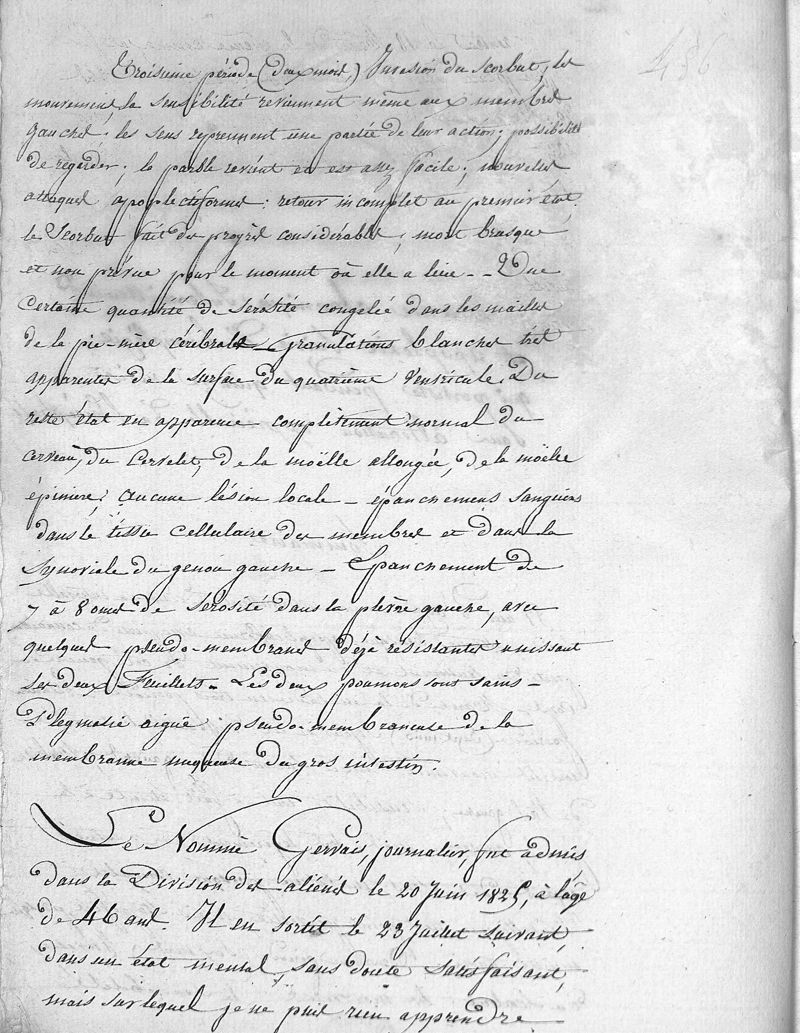 486
Troisième période (deux mois) Invasion du Scorbut, les
mouvemens, la sensibilité reviennent même aux membres
gauches; les sens reprennent une partie de leur action; possibilité
de regarder; la parole revient et est assez facile; nouvelles
attaques apoplectiformes; retour incomplet au premier état.
le Scorbut fait des progrès considérables, mort brusque
et non prévue pour le moment où elle a lieu -- Une
certaine quantité de sérosité congelée dans les mailles
de la pie-mère cérébrale - Granulations blanches très
apparentes de la surface du quatrième ventricule. Du
reste état en apparence complètement normal du
cerveau, du Cervelet, de la moëlle allongée, de la moëlle
épinière; aucune lésion locale - épanchemens sanguins
dans le tissu cellulaire des membres et dans la
synoviale du genou gauche - Epanchement de
7 à 8 onces de sérosité dans la plèvre gauche, avec
quelques pseudo-membranes déjà résistantes unissant
ses deux Feuillets - Les deux poumons sont sains -
Plegmasie aigüe pseudo-membraneuse de la
membranne muqueuse du gros intestin.
Le Nommé Gervais, journalier, fut admis
dans la Division des aliénés le 20 Juin 1825, à l'âge
de 46 ans. Il en sortit le 23 Juillet suivant,
dans un état mental, sans doute satisfaisant,
mais sur lequel je ne puis rien apprendre